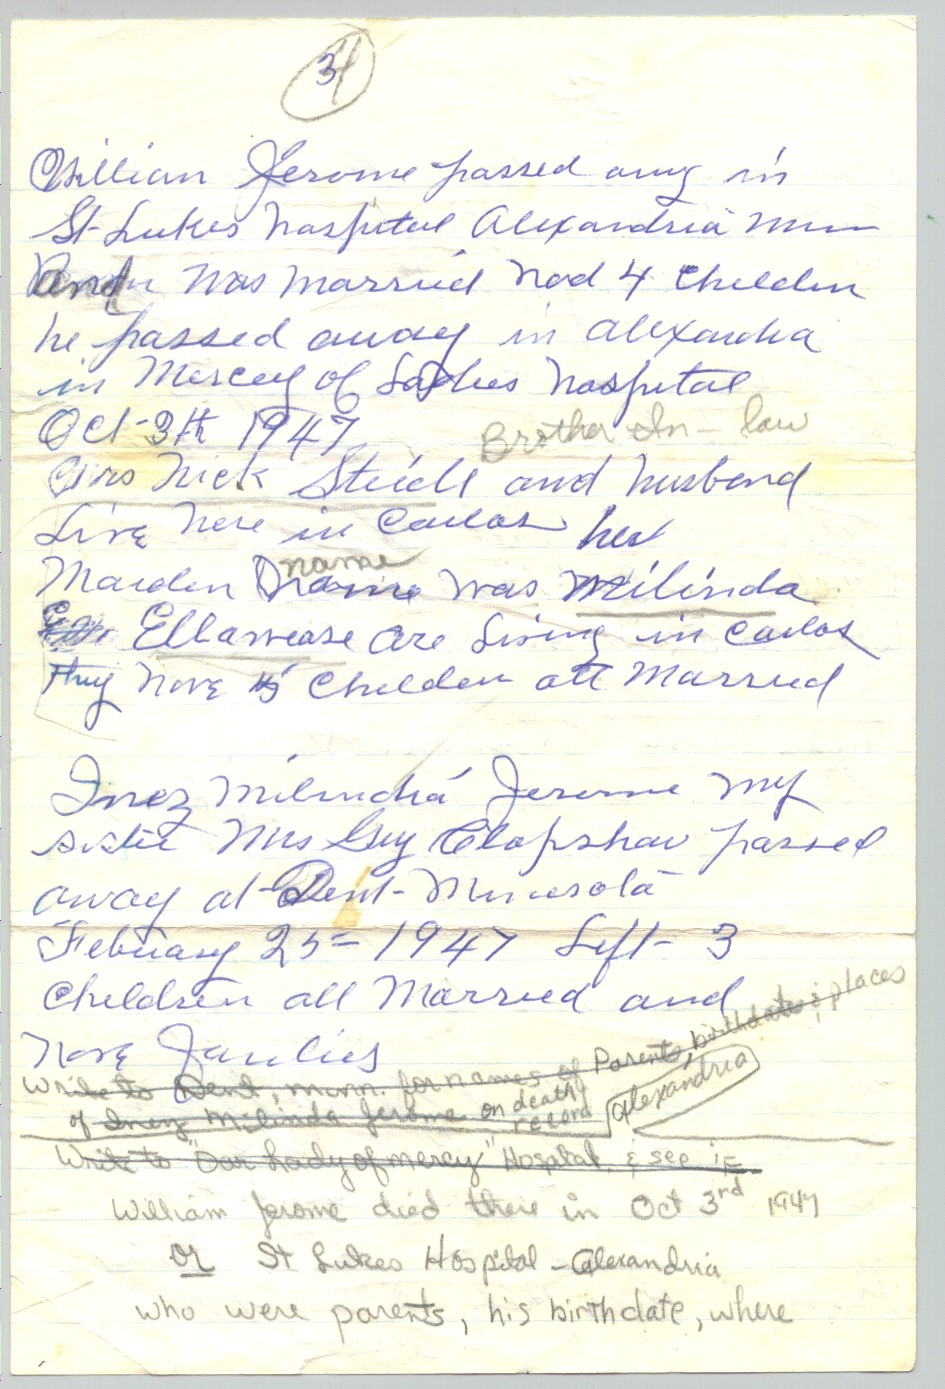 34
William Jerome passed away in
St Lukes hospital Alexandria Minn
was married had 4 children
he passed away in Alexandria
in Mercey of Ladies hospital
Oct 3th 1947
Brother In-law
Mrs Nick Steidl and husband
Live here in Carlos her
name
Maiden name was Milinda
Ellawease are Living in Carlos
they have 5 children all married
Inez Milindia Jerome my
sister Mrs Guy Clapshaw passed
away at Dent Minnesota
February 25 - 1947 Left - 3
children all married and
have Families
Write to Dent, minn. for names of Parents, birthdate & places
of Inez Milinda Jerome on death record
Alexandria
Write to "Our Lady of mercy" Hospital, & see if
William Jerome died there in Oct 3rd 1947
or St Lukes Hospital - Alexandria
who were parents, his birthdate, where